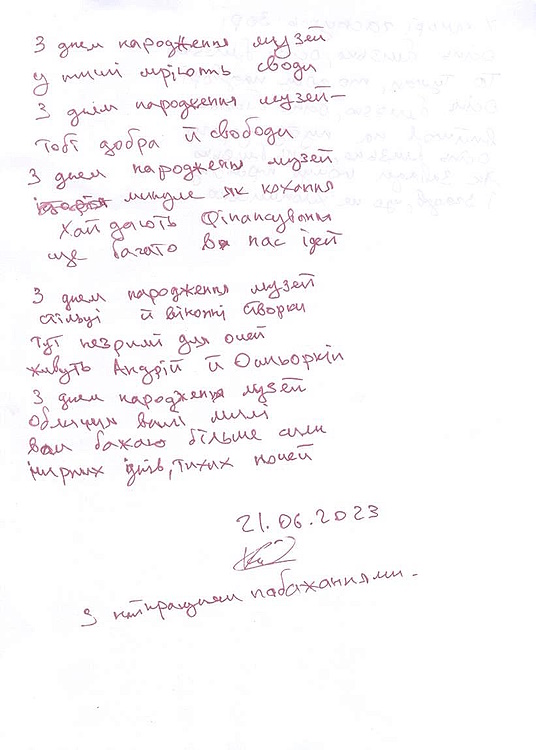 З днем народження музей
у тиші мріють своди
З днем народження музей—
тобі добра й свободи
З днем народження музей
минуле як кохання
Хай дають фінансування
ще багато в нас ідей
З днем народження музей
стільці й віконні створки
тут незримі для очей
живуть Андрій й Осьоркін
З днем народження музей
обличчя ваші милі
вам бажаю більше сили
мирних днів, тихих ночей
21.06.2023
З найкращими побажаннями.